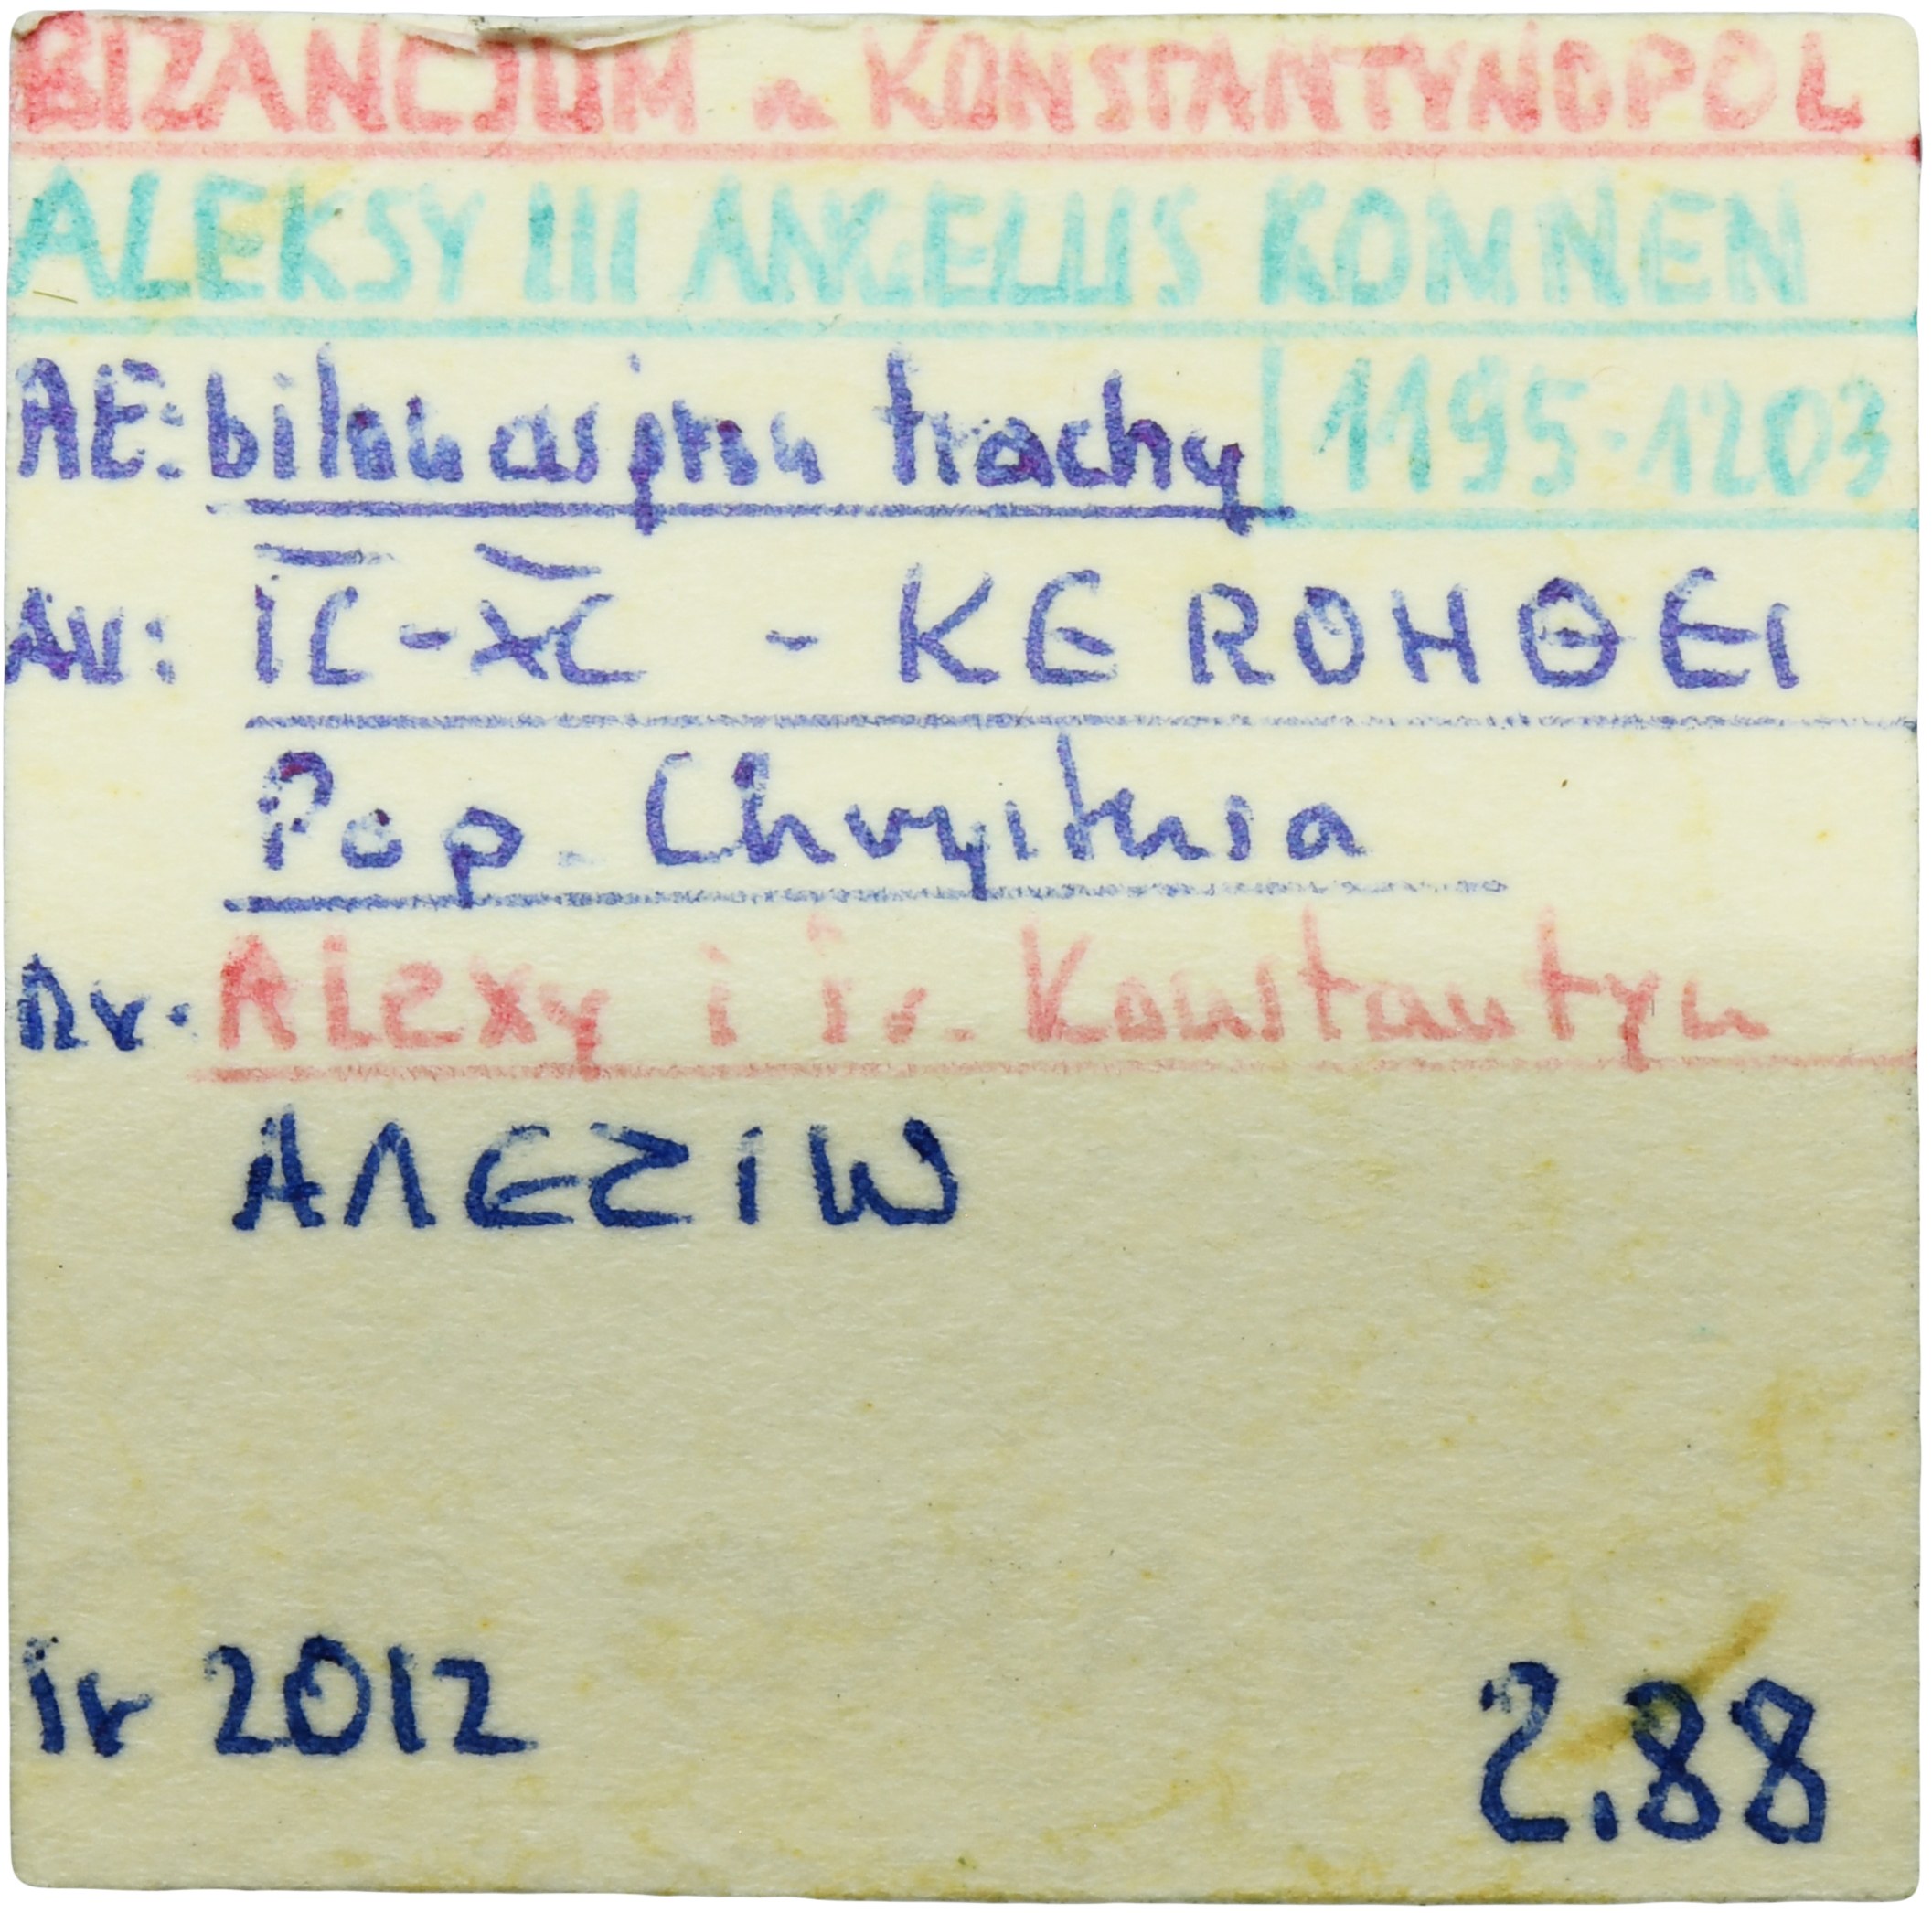 BIZANCJUM n KONSTANTYNOPOL
ALEKSY III ANGELUS KOMNEN
AE: bilon aspron trachy 1195-1203
Av: I̅C̅ - X̅C̅ - KE ROHΘEI
Pop. Chrystusa
Rv. Alexy i św. Konstantyn
AΛEZIW
Ir 2012 2.88